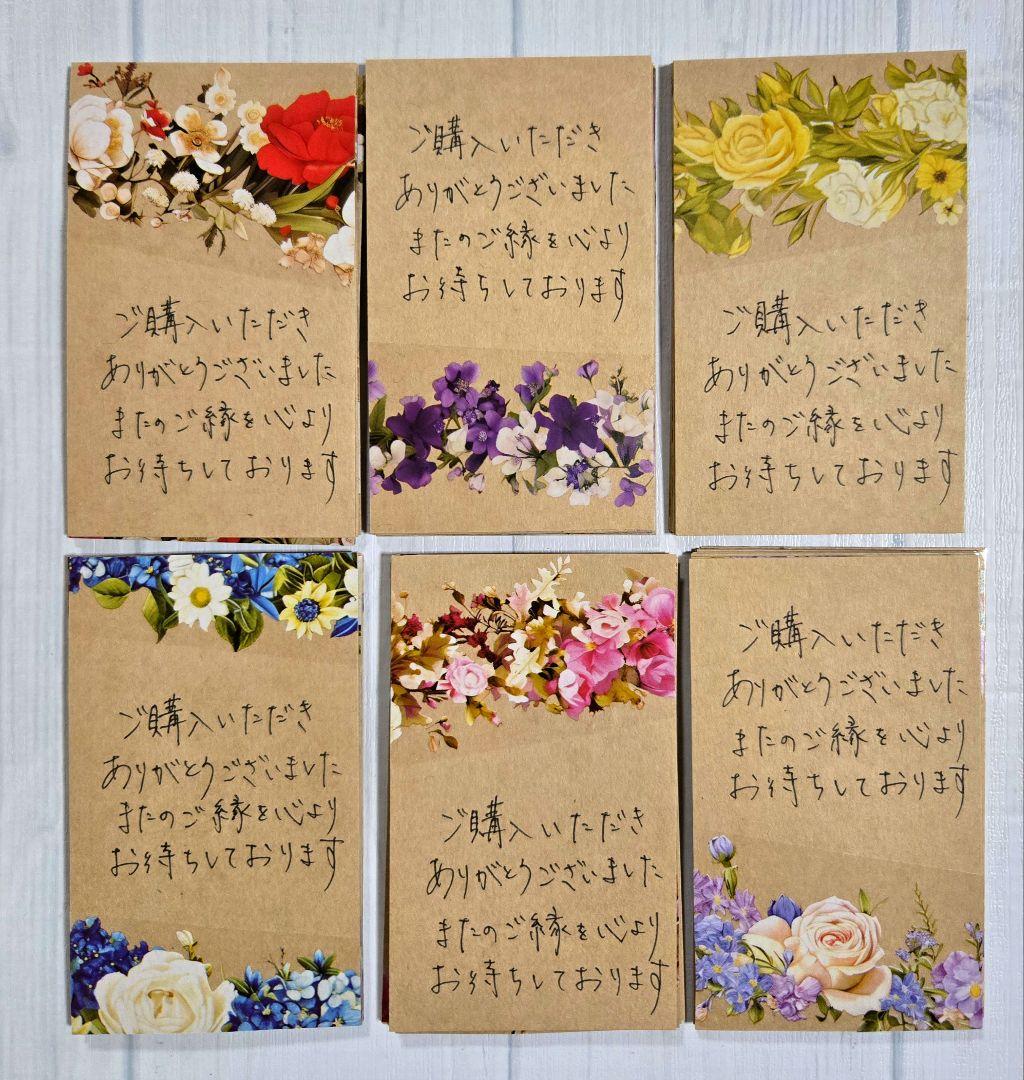 ご購入いただき
ありがとうございました
またのご縁を心より
お待ちしております
ご購入いただき
ありがとうございました
またのご縁を心より
お待ちしております
ご購入いただき
ありがとうございました
またのご縁を心より
お待ちしております
ご購入いただき
ありがとうございました
またのご縁を心より
お待ちしております
ご購入いただき
ありがとうございました
またのご縁を心より
お待ちしております
ご購入いただき
ありがとうございました
またのご縁を心より
お待ちしております